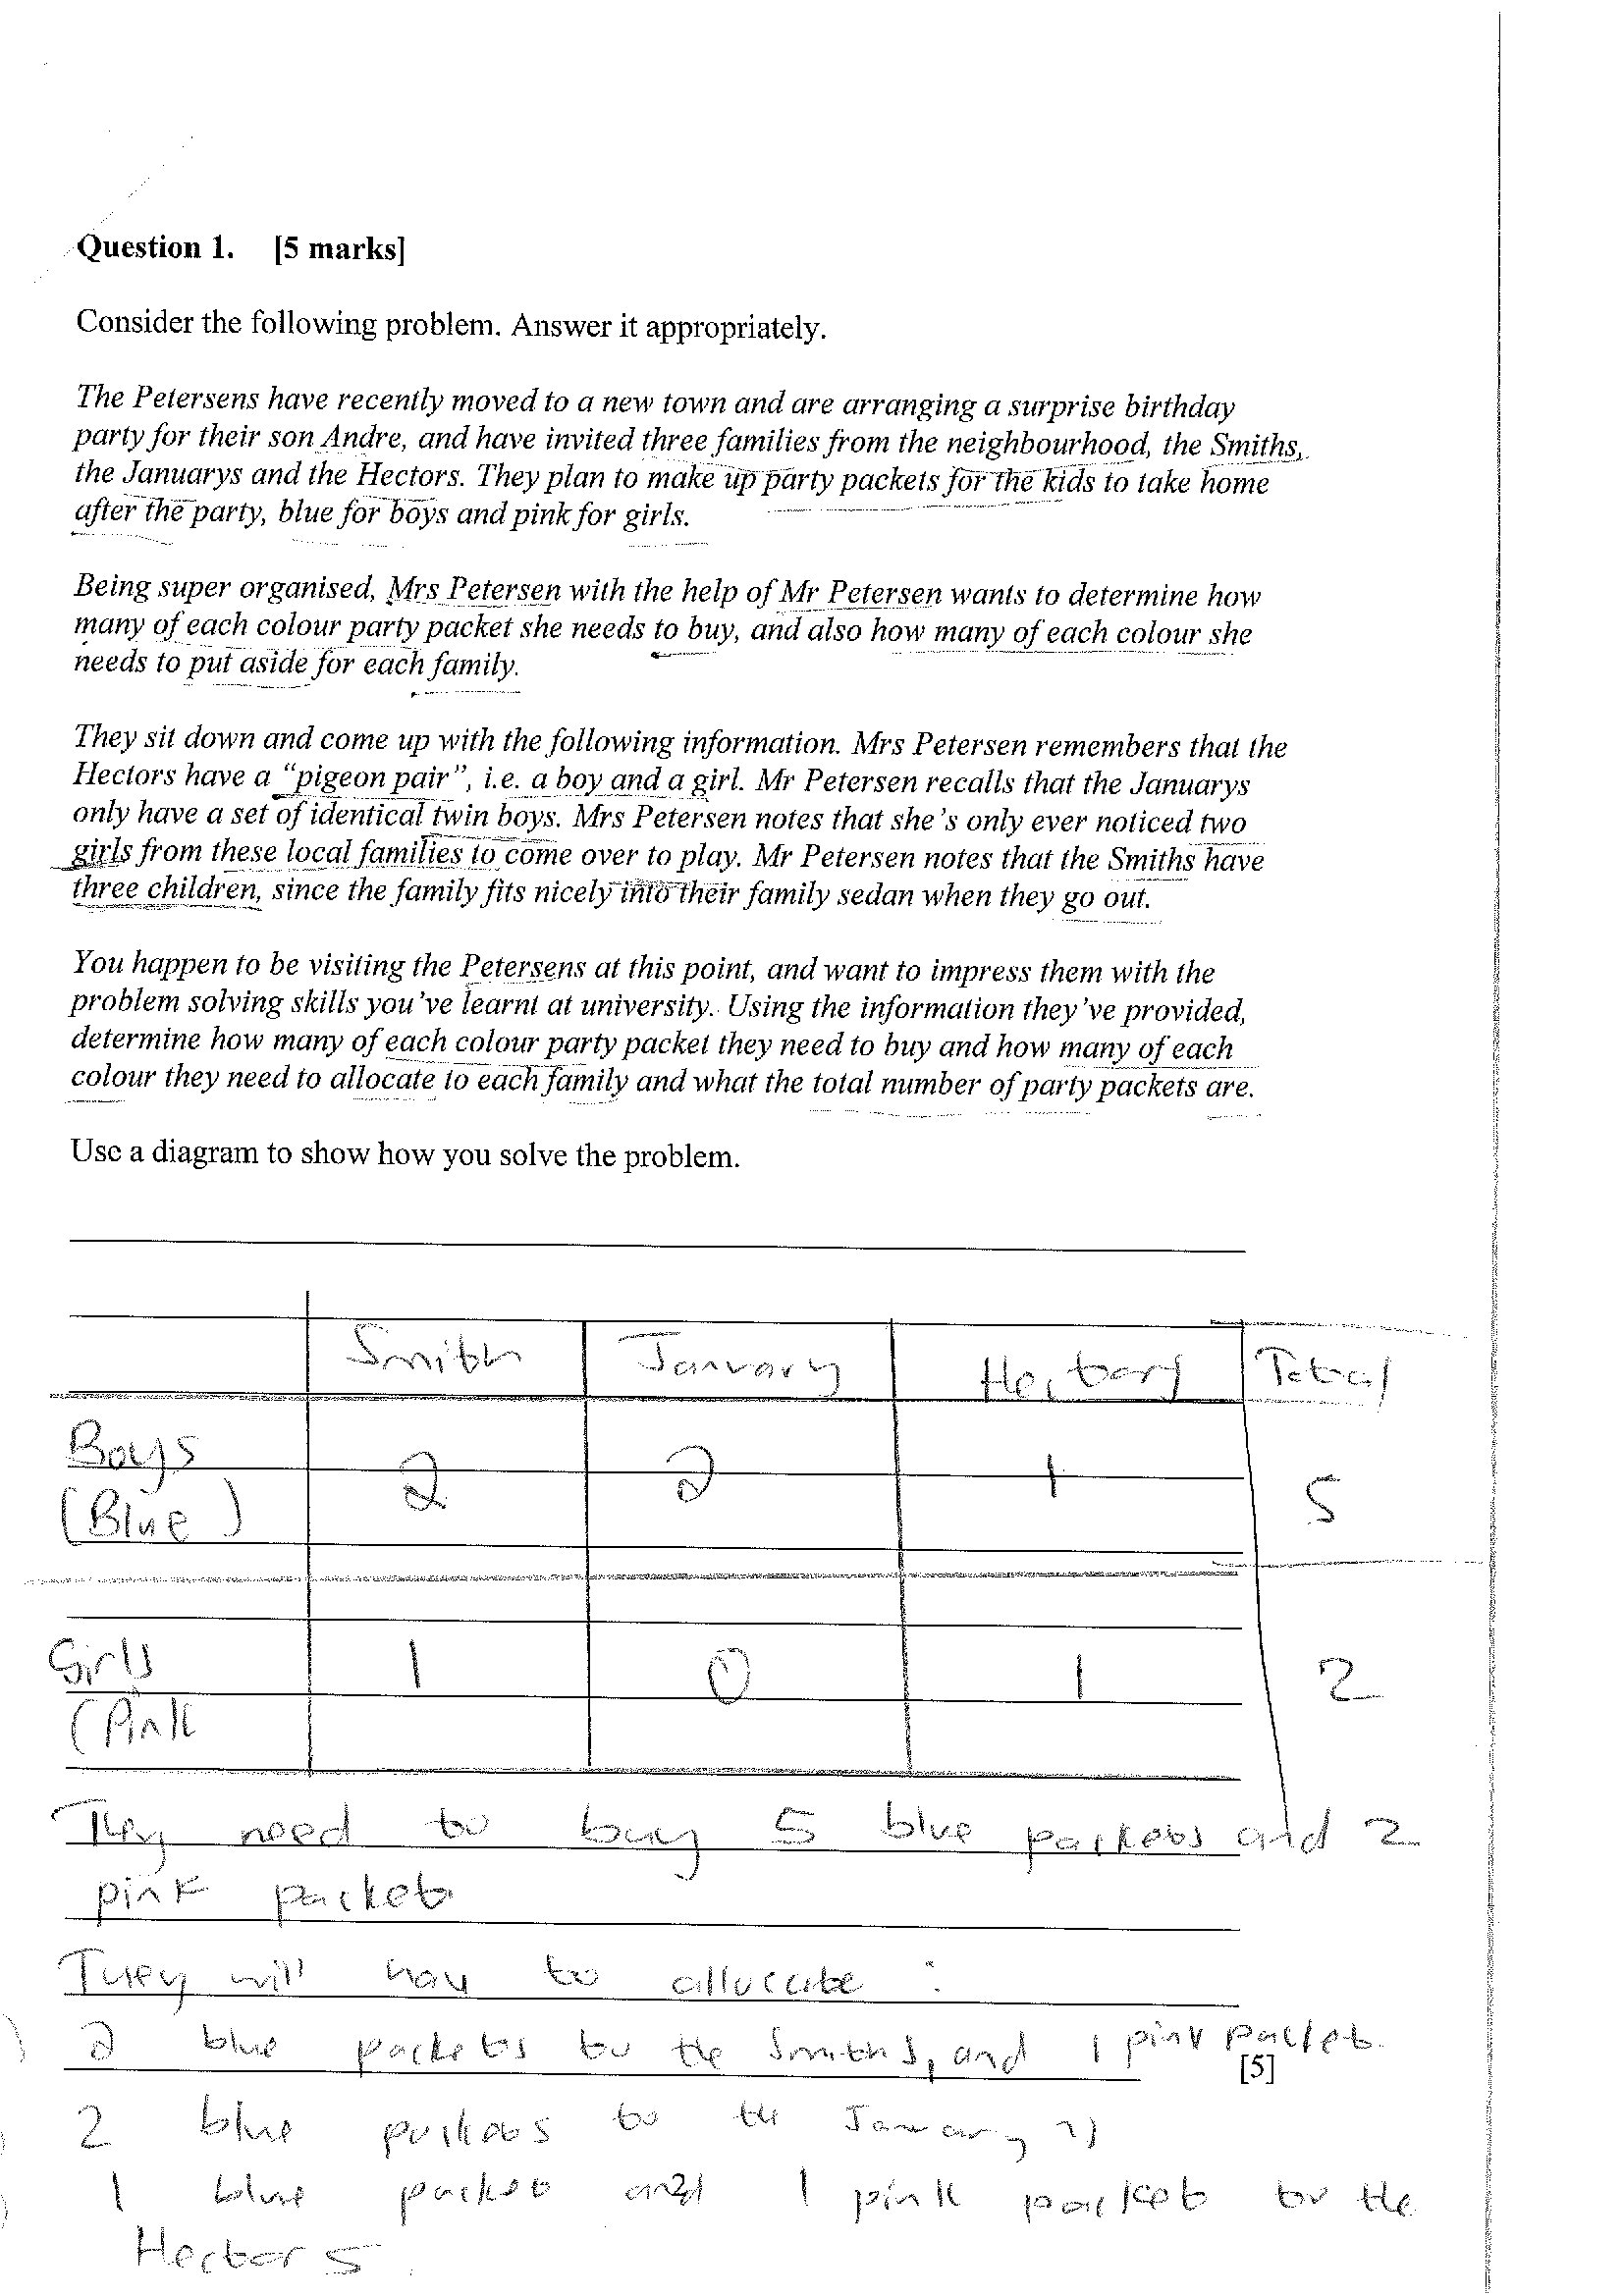 Question 1. [5 marks]
Consider the following problem. Answer it appropriately.
The Petersens have recently moved to a new town and are arranging a surprise birthday
party for their son Andre, and have invited three families from the neighbourhood, the Smiths,
the Januarys and the Hectors. They plan to make up party packets for the kids to take home
after the party, blue for boys and pink for girls.
Being super organised, Mrs Petersen with the help of Mr Petersen wants to determine how
many of each colour party packet she needs to buy, and also how many of each colour she
needs to put aside for each family.
They sit down and come up with the following information. Mrs Petersen remembers that the
Hectors have a “pigeon pair”, i.e. a boy and a girl. Mr Petersen recalls that the Januarys
only have a set of identical twin boys. Mrs Petersen notes that she's only ever noticed two
girls from these local families to come over to play. Mr Petersen notes that the Smiths have
three children, since the family fits nicely into their family sedan when they go out.
You happen to be visiting the Petersens at this point, and want to impress them with the
problem solving skills you've learnt at university. Using the information they've provided,
determine how many of each colour party packet they need to buy and how many of each
colour they need to allocate to each family and what the total number of party packets are.
Use a diagram to show how you solve the problem.
Smith January Total
Boys 2 2 1 5
(Blue)
Girls 1 0 1 2
(Pink
They need to buy 5 blue packets and 2
pink packets
They will have to allocate :
2 blue packets to the Smiths, and 1 pink packet.
[5]
2 blue packets to the Januarys
1 blue packet and 1 pink packet to the
Hectors